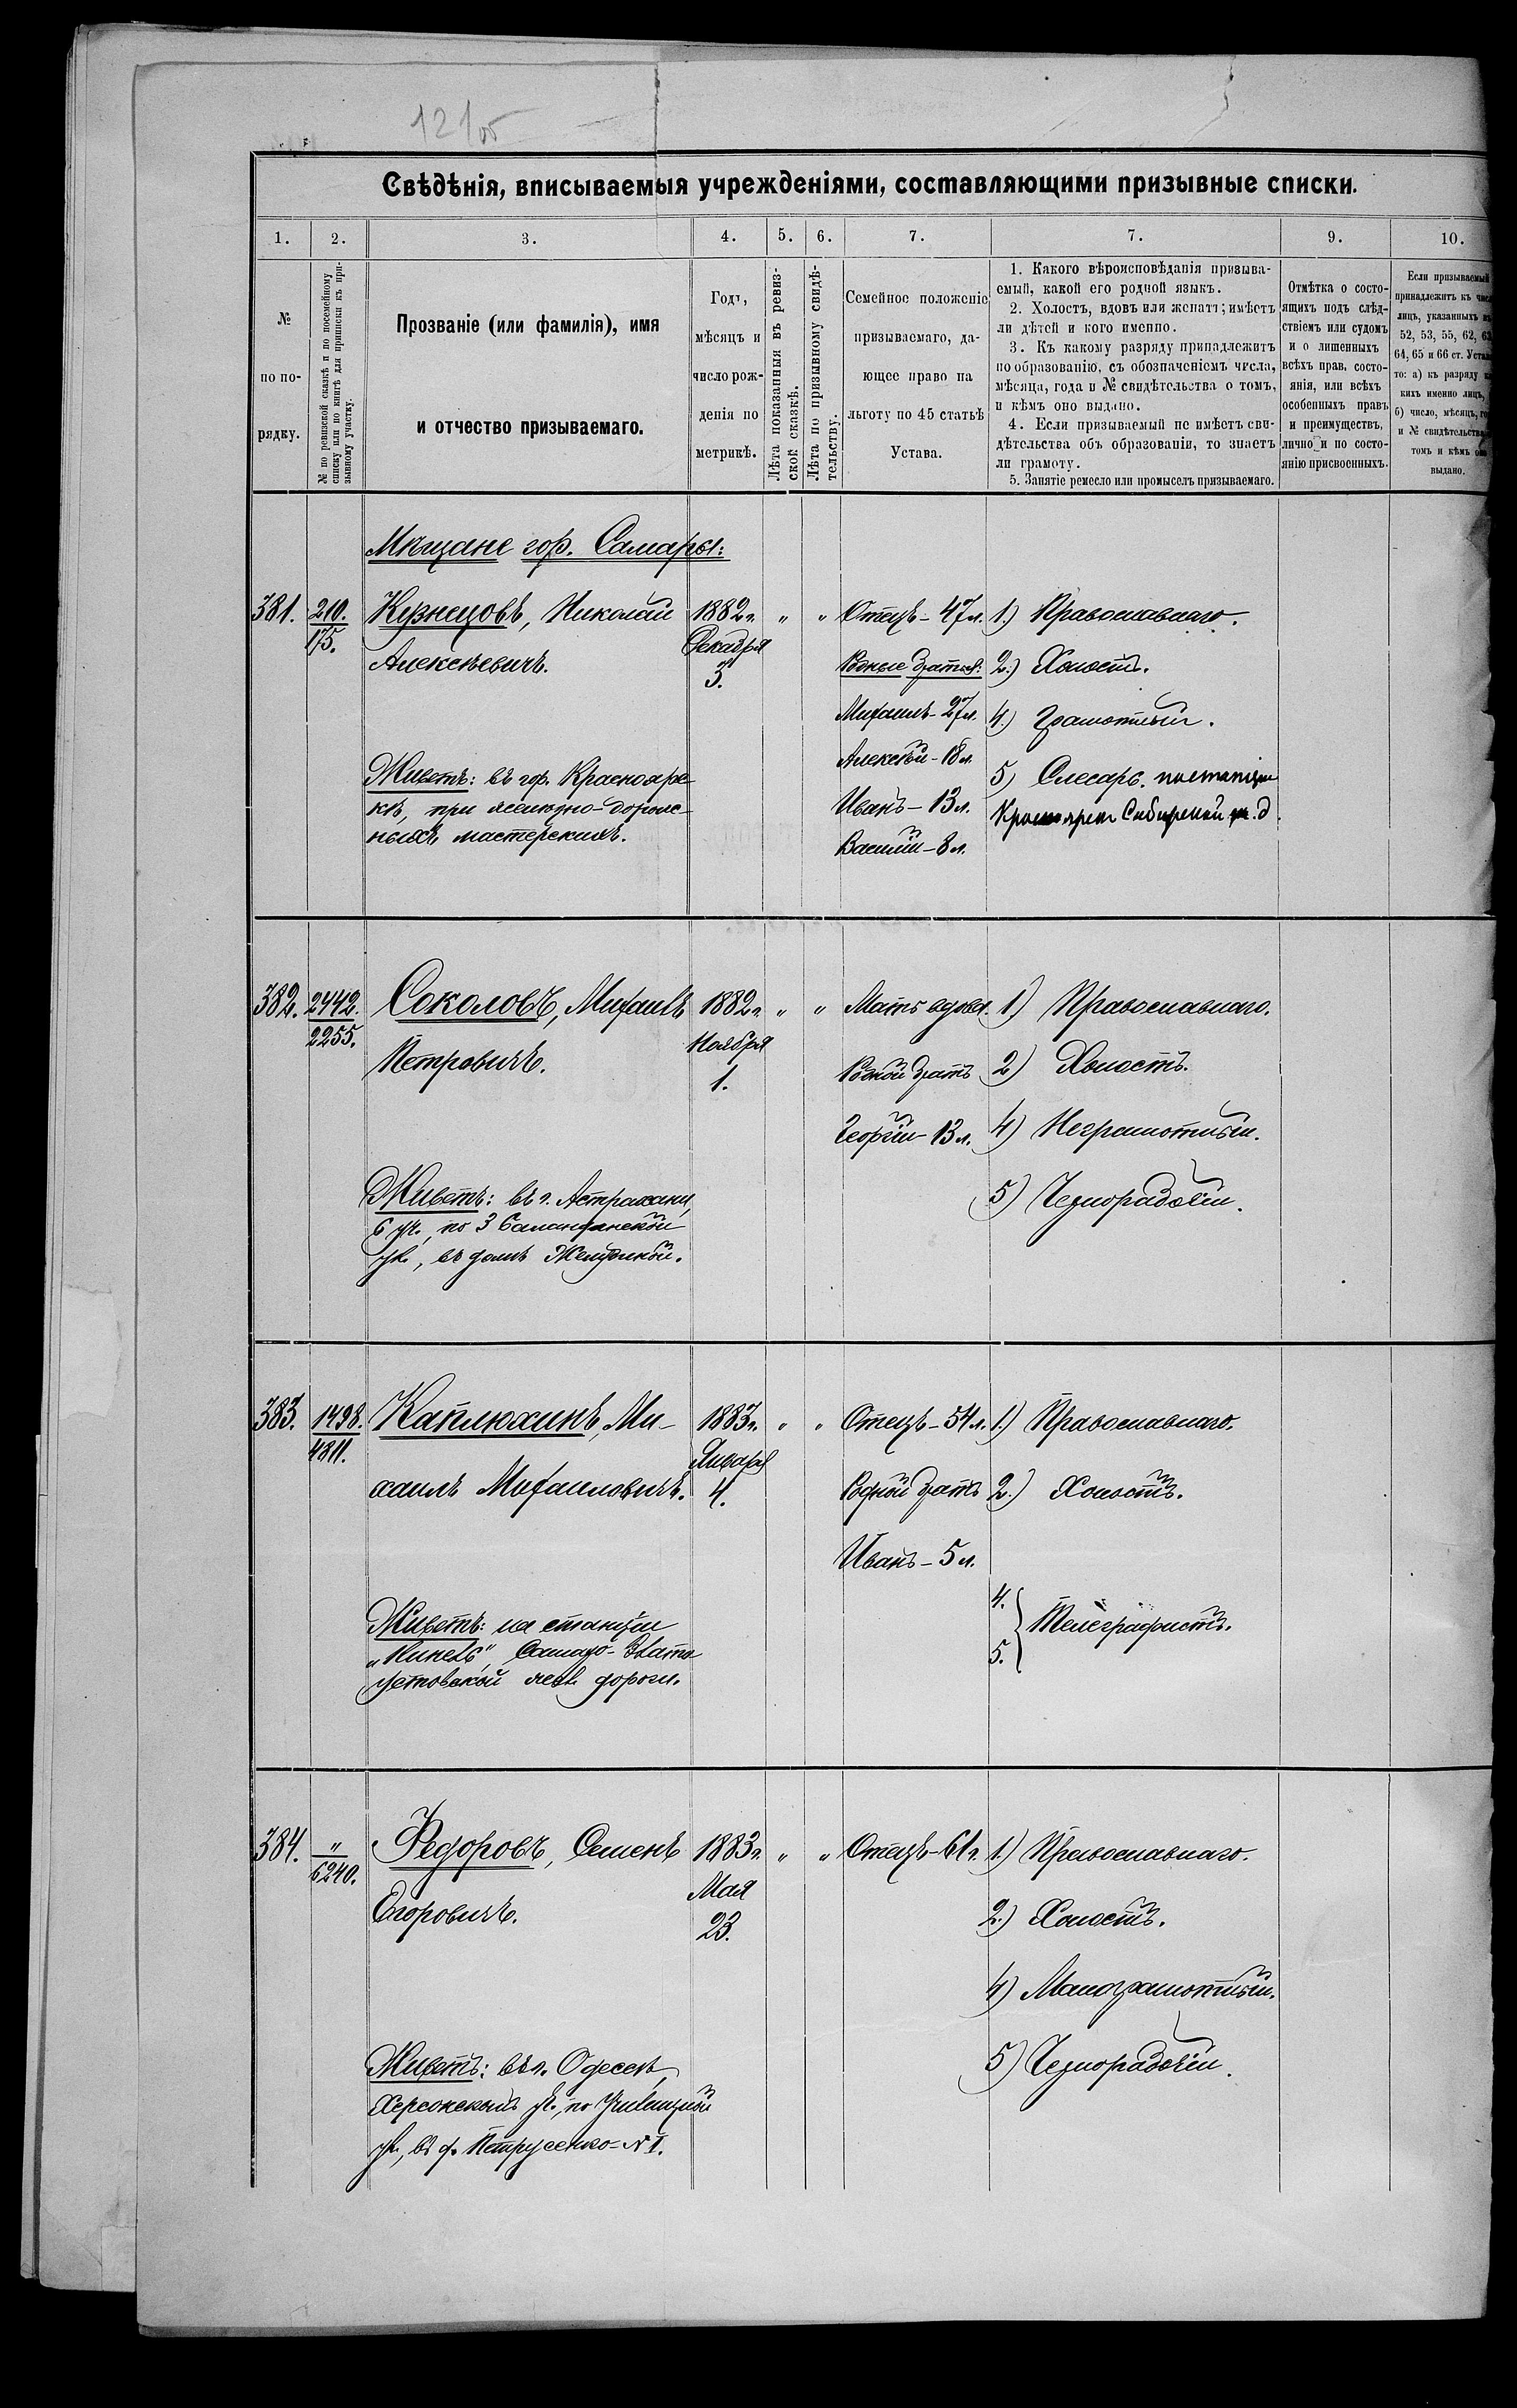 121 об
Свѣдѣнія, вписываемыя учрежденіями, составляющими призывные списки.
1.
2.
3.
4.
5.
6.
7.
7.
9.
10.
№
по по-
рядку.
№ по ревизской сказкѣ и по посемейному
списку или по книгѣ для приписки къ при-
зывному участку.
Прозваніе (или фамилія), имя
и отчество призываемаго.
Годъ,
мѣсяцъ и
число рож-
денія по
метрикѣ.
Лѣта показанныя въ ревиз-
ской сказкѣ.
Лѣта по призывному свидѣ-
тельству.
Семейное положеніе
призываемаго, да-
ющее право на
льготу по 45 статьѣ
Устава.
1. Какого вѣроисповѣданія призыва-
емый, какой его родной языкъ.
2. Холостъ, вдовъ или женатъ; имѣетъ
ли дѣтей и кого именно.
3. Къ какому разряду принадлежитъ
по образованію, съ обозначеніемъ числа,
мѣсяца, года и № свидѣтельства о томъ,
и кѣмъ оно выдано.
4. Если призываемый не имѣетъ сви-
дѣтельства объ образованіи, то знаетъ
ли грамоту.
5. Занятіе ремесло или промыселъ призываемаго.
Отмѣтка о состо-
ящихъ подъ слѣд-
ствіемъ или судомъ
и о лишенныхъ
всѣхъ прав, состо-
янія, или всѣхъ
особенныхъ правъ
и преимуществъ,
лично и по состо-
янію присвоенныхъ.
Если призываемый
принадлежитъ къ
лицъ, указанныхъ
52, 53, 55, 62,
64, 65 и 66 ст.
то: а) къ разряду
кихъ именно лицъ,
б) число, мѣсяцъ,
и № свидѣтельства
томъ и кѣмъ
выдано.
Мѣщане гор. Самары:
381.
210.
175.
Кузнецовъ, Николай
Алексѣевичъ.
1882 г.
Декабря
3.
"
"
Отецъ - 47 л.
Родные братья:
Михаилъ - 27 л.
Алексѣй - 18 л.
Иванъ - 13 л.
Василій - 8 л.
1) Православнаго.
2.) Холостъ.
4.) Грамотный.
5) Слесарь. на станціи
Красноярск Сибирской ж. д.
Живетъ: въ гор. Красноярс-
кѣ, при желѣзно-дорож-
ныхъ мастерскихъ.
382.
2442.
2255.
Соколовъ, Михаилъ
Петровичъ.
1882 г.
Ноября
1.
"
"
Мать вдова.
Родной братъ
Георгій - 13 л.
1) Православнаго.
2) Холостъ.
4) Неграмотный.
5) Чернорабочій.
Живетъ: въ г. Астрахани,
6 уч., по 3
ул., въ домѣ
383.
1498.
4811.
Каплюхинъ, Ми-
хаилъ Михаиловичъ.
1883 г.
Января
4.
"
"
Отецъ - 54 л.
Родной братъ
Иванъ - 5 л.
1.) Православнаго.
2.) Холостъ.
4.
5.
Телеграфистъ.
Живетъ: на станціи
„Кинель", Самаро-Злато-
устовской жел. дороги.
384.
"
6240.
Федоровъ, Семенъ
Егоровичъ.
1883 г.
Мая
23.
"
"
Отецъ - 61 г.
1.) Православнаго.
2.) Холостъ.
4) Малограмотный.
5) Чернорабочій.
Живетъ: въ г. Одессѣ,
Херсонскомъ уч., по
ул., въ д. Петрусенко - № 1.